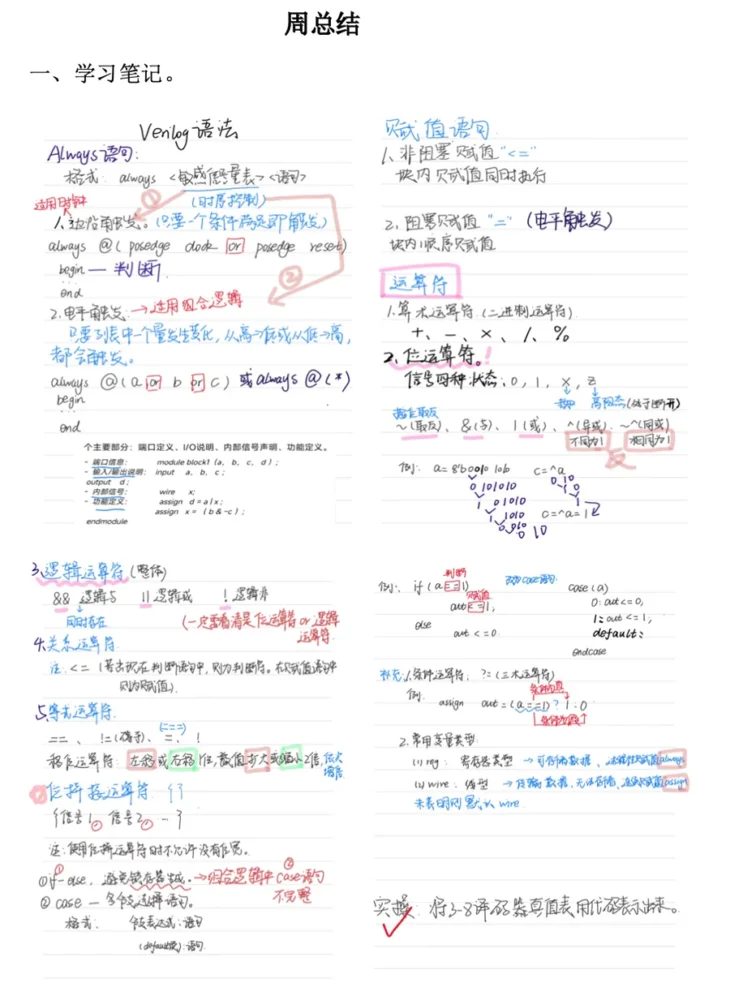 周总结
一、学习笔记。
Verilog 语法
Always语句:
格式: always <敏感信号量表> <语句>
(时序控制)
适用时钟
1、边沿触发。(只要一个条件满足即触发)
①
always @( posedge clock or posedge reset)
begin — 判断
...
end
②
2.电平触发: →适用组合逻辑
只要列表中一个量发生变化, 从高→低或从低→高,
都会触发。
always @(a or b or c) 或always @(*)
begin
...
end
个主要部分: 端口定义、I/O说明、内部信号声明、功能定义。
- 端口信息: module block1 (a, b, c, d);
- 输入/输出说明: input a, b, c;
output d;
- 内部信号: wire x;
- 功能定义: assign d = a | x;
assign x = ( b & ~c );
endmodule
赋值语句
1、非阻塞赋值 "<="
块内赋值同时执行
2、阻塞赋值 "=" (电平触发)
块内顺序赋值
运算符
1.算术运算符.(二进制运算符)
+、-、×、/、%
2、位运算符。!
信号四种状态: 0, 1, x, z
高阻态(处于断开)
按位取反
~(取反)、&(与)、|(或)、^(异或)、~^(同或)
不同为1 相同为1
反
例: a= 8'b0010 10b c=^a
0 101010
1 01010
1 1010
c=^a=1
3.逻辑运算符 (整体)
&& 逻辑与 || 逻辑或 ! 逻辑非
同时存在
(一定要看清是位运算符 or 逻辑
运算符
4.关系运算符
注: <= (若出现在判断语句中, 则为判断符。在赋值语句中
则为赋值)
5、等式运算符
(===)
==、!=(不等)、
移位运算符: 左移或右移1位, 数值扩大或缩小2倍,
位拼接运算符: { }
{信号1, 信号2, … }
注: 使用位拼接运算符时不允许没有位宽。
① if-else, 避免锁存器生成。→组合逻辑中 case语句
不完整
② case — 多分支选择语句。
格式: 分支表达式: 语句
(default项): 语句
判断
例: if (a == 1)
赋值
out <= 1,
else
out <= 0
改为case语句:
case (a)
0: out <= 0,
1: out <= 1,
default:
endcase
补充: 1.条件运算符: ?= (三木运算符)
例: assign out = (a==1) ? 1 : 0
条件为真
条件为假
2. 常用变量类型:
(1) reg: 寄存器类型 → 可存储数据、always
(2) wire: 线型 → 传输数据, 无法存储、assign
未表明则默认 wire.
实操: 将3-8译码器真值表用代码表示出来。